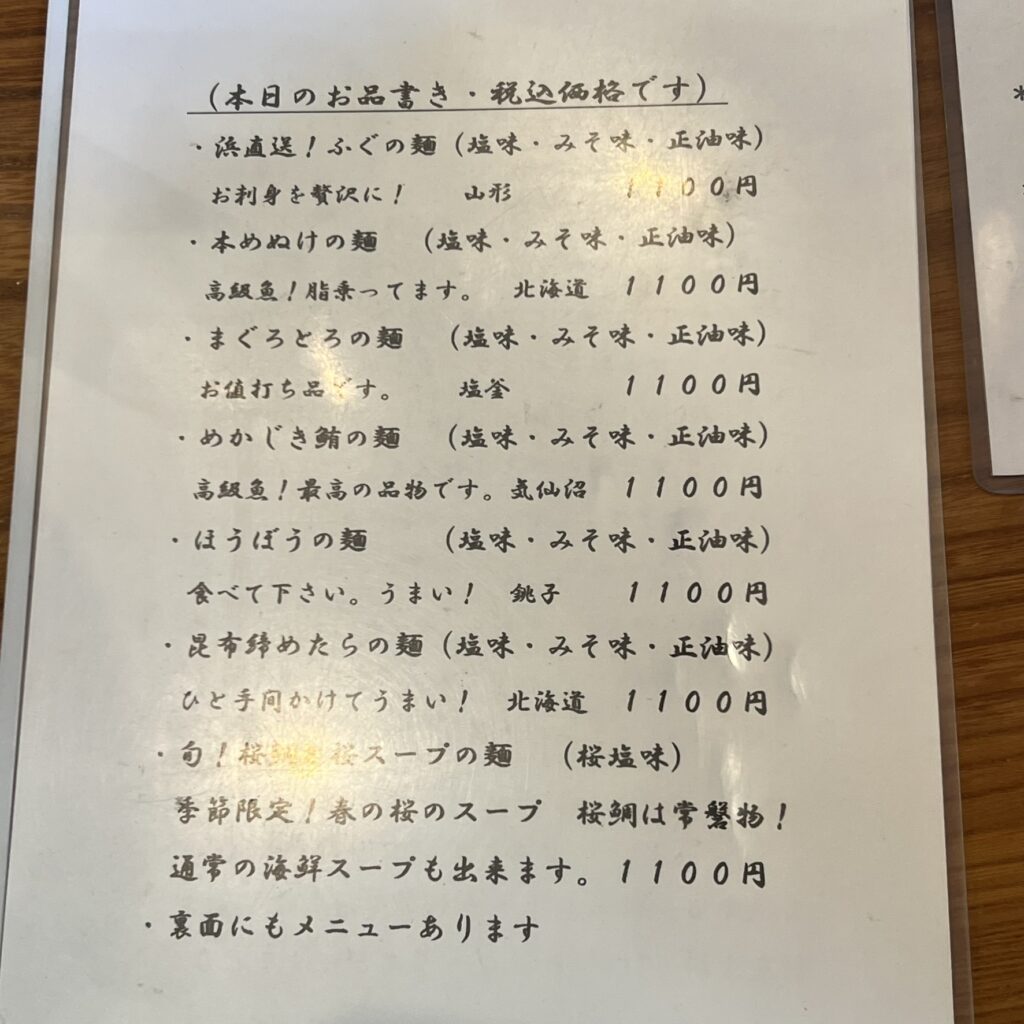 (本日のお品書き・税込価格です)
・浜直送!ふぐの麺(塩味・みそ味・正油味)
お刺身を贅沢に! 山形 1100円
・本めぬけの麺 (塩味・みそ味・正油味)
高級魚!脂乗ってます。 北海道 1100円
・まぐろとろの麺 (塩味・みそ味・正油味)
お値打ち品です。 塩釜 1100円
・めかじき鮪の麺 (塩味・みそ味・正油味)
高級魚!最高の品物です。気仙沼 1100円
・ほうぼうの麺 (塩味・みそ味・正油味)
食べて下さい。うまい! 銚子 1100円
・昆布締めたらの麺(塩味・みそ味・正油味)
ひと手間かけてうまい! 北海道 1100円
・旬!桜鯛と桜スープの麺 (桜塩味)
季節限定!春の桜のスープ 桜鯛は常磐物!
通常の海鮮スープも出来ます。1100円
・裏面にもメニューあります